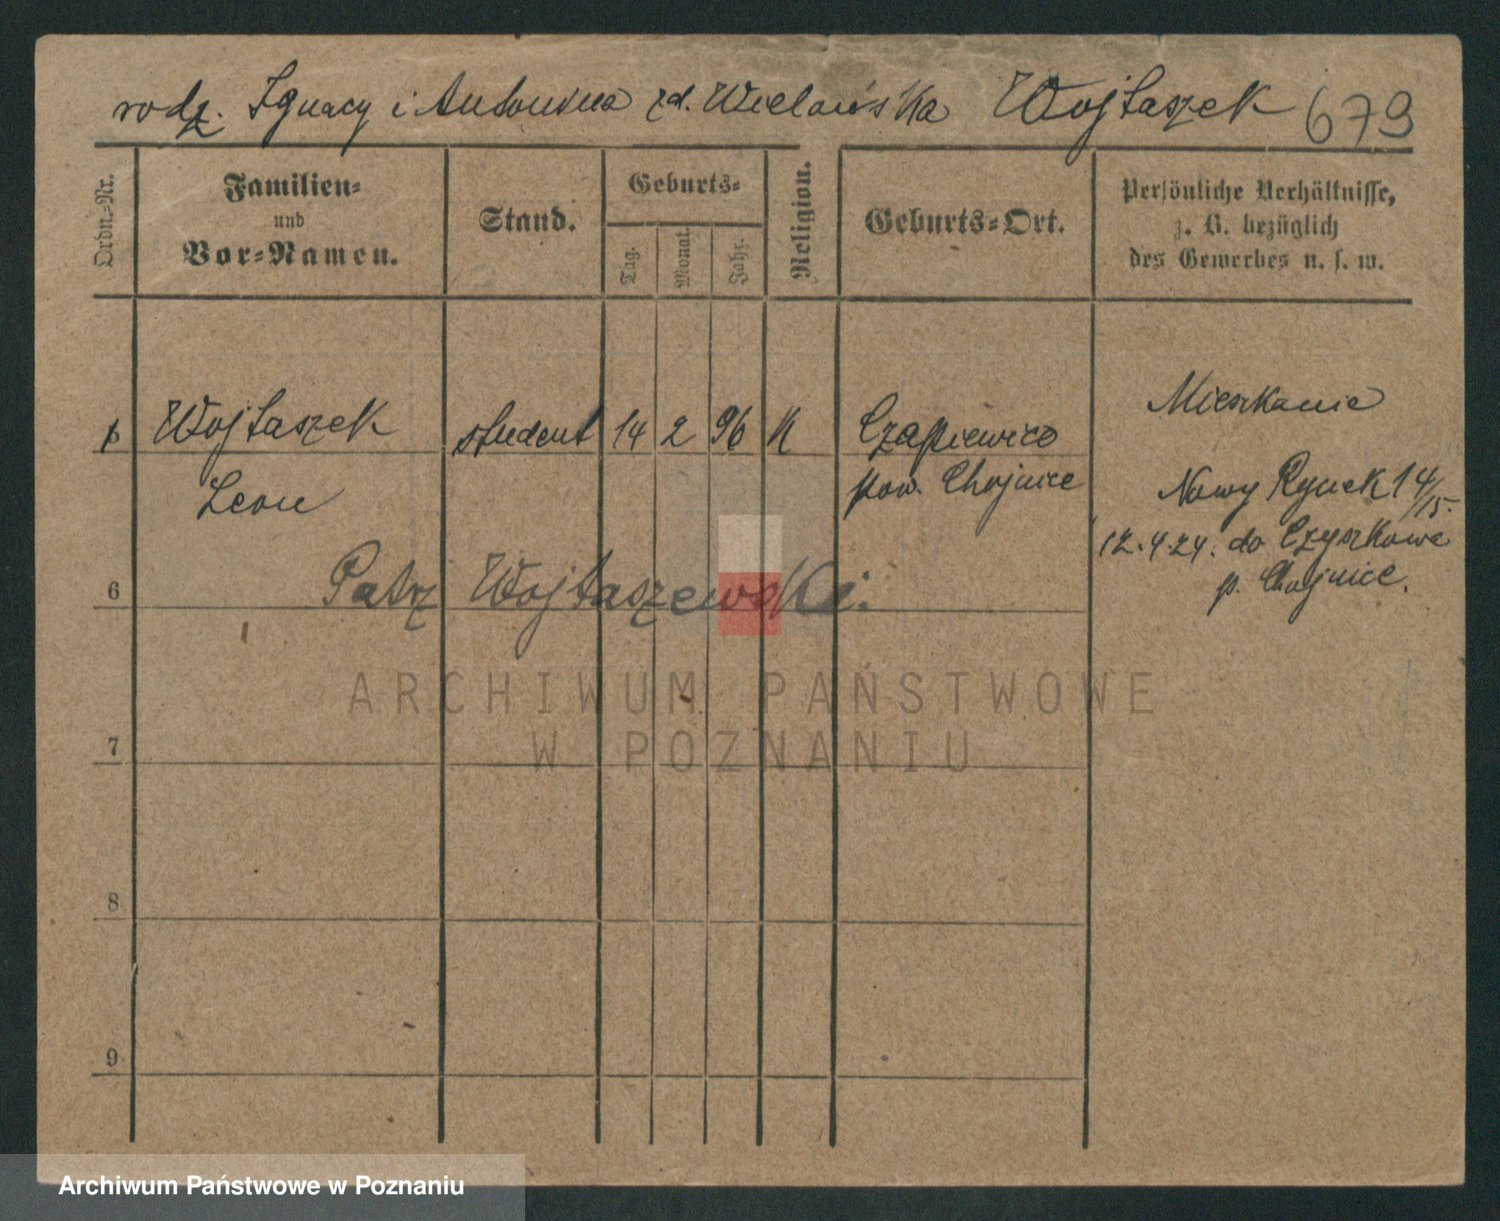 rodz. Ignacy i Antonina zd. Wielańska Wojtaszek 679
Ordn.-Nr.
Familien-
und
Vor-Namen.
Stand.
Geburts-
Tag.
Monat.
Jahr.
Religion.
Geburts-Ort.
Persönliche Verhältnisse,
z. B. bezüglich
des Gewerbes u. s. w.
Wojtaszek student 14 2 96 K Czapiewice
Leon
pow. Chojnice
Mieszkanie
Nowy Rynek 14/15.
12.4.24. do Czyszkowe
p. Chojnice.
6 Patrz Wojtaszewski.
7
8
9
ARCHIWUM PAŃSTWOWE
W POZNANIU
Archiwum Państwowe w Poznaniu